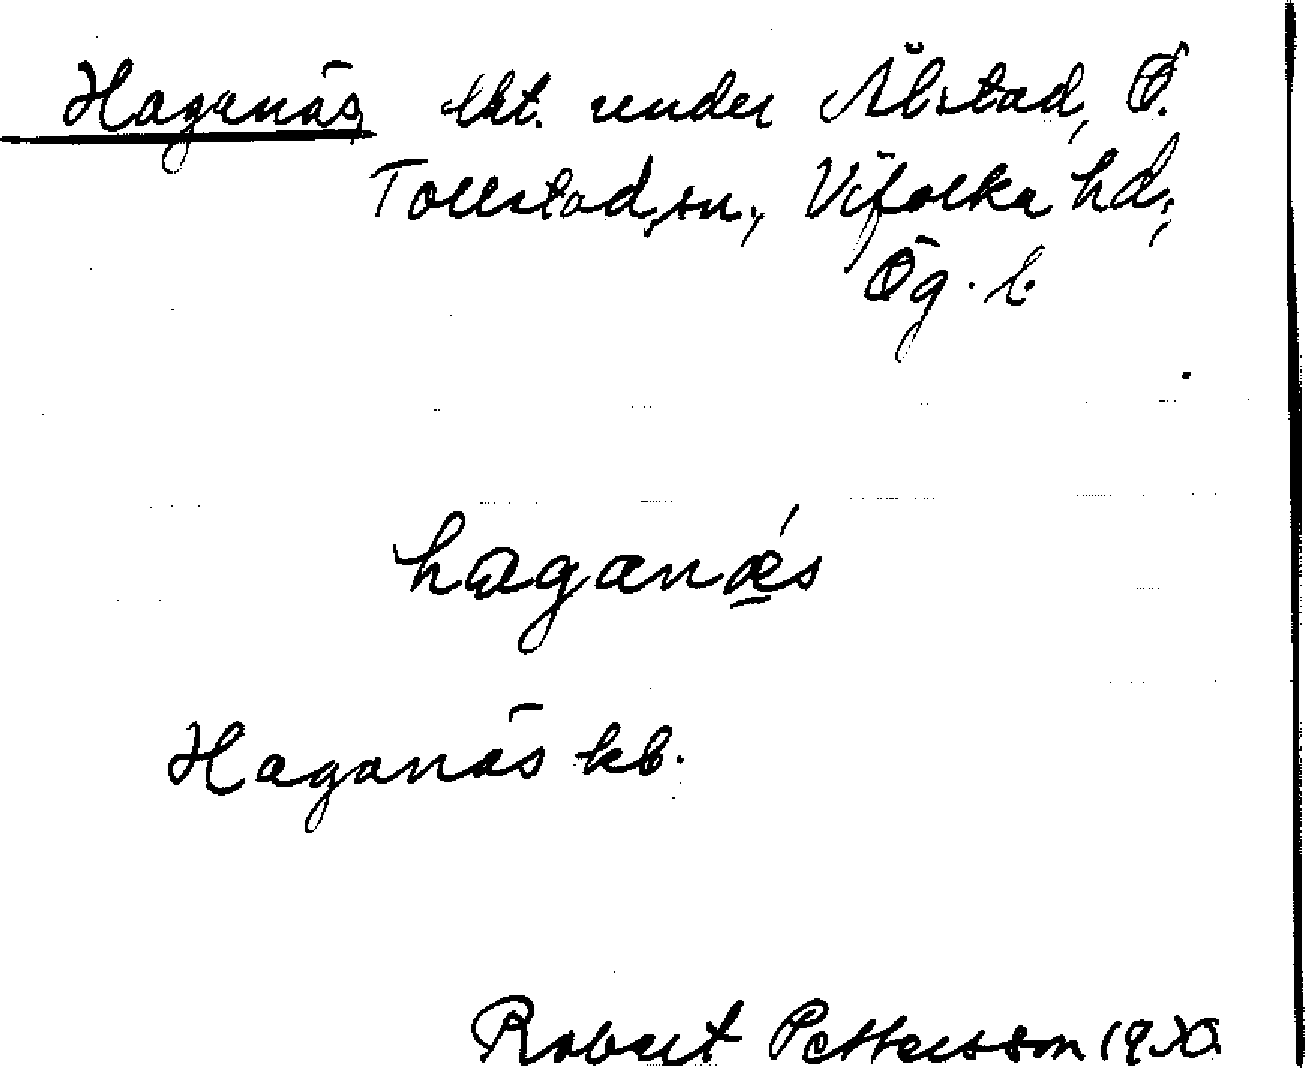 Haganäs, lht. under Ålstad, Ö.
Tollstad, sn., Vifolka hd,
Ög. l.
haganǽs
Haganäs kb.
Robert Pettersson